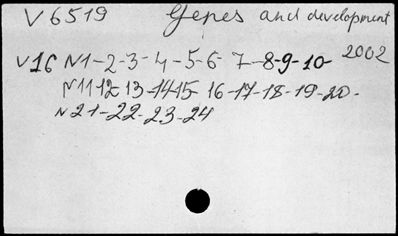 V 6519 Genes and development
V16 N1-2-3-4-5-6-7-8-9-10- 2002
N11 12 13-14-15 16-17-18-19-20-
N21-22-23-24